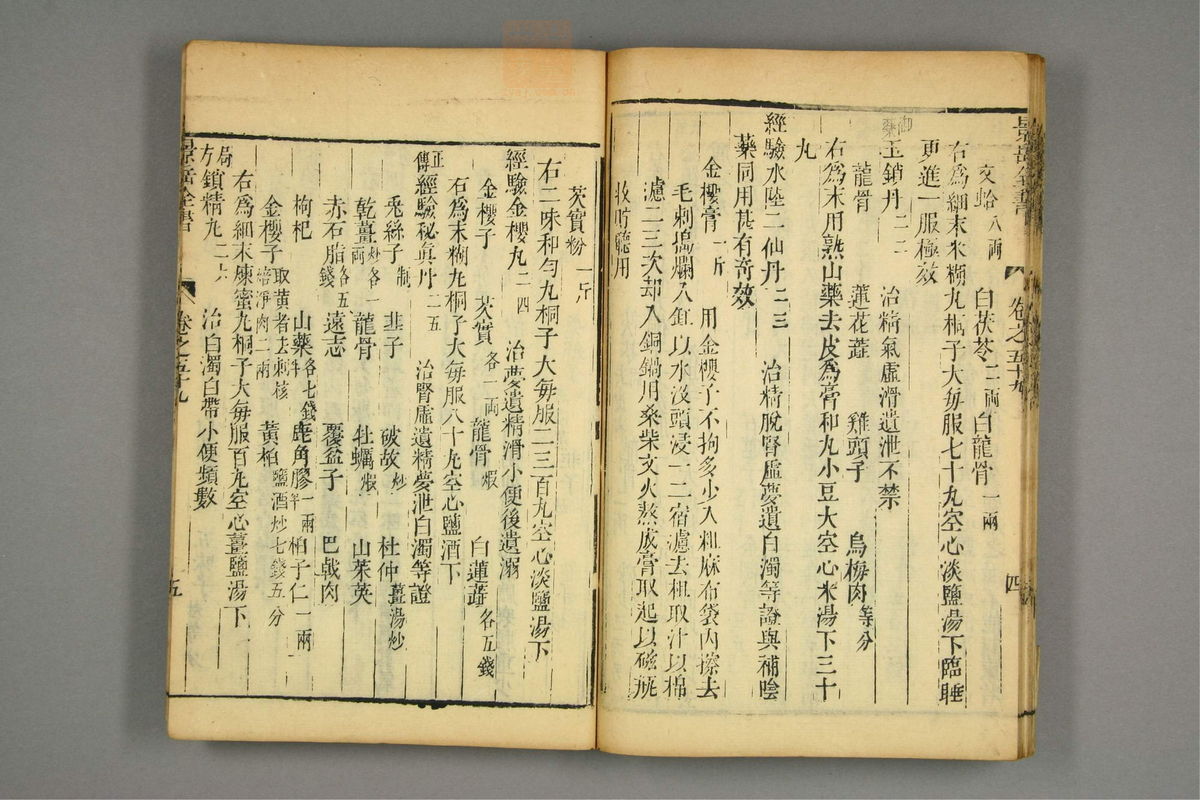 景岳全書 卷之五十九 四
文蛤八両 白茯苓二両 白龍骨一兩
右爲細末米糊丸桐子大每服七十丸空心淡鹽湯下臨睡
更進一服極效
御藥玉鎖丹二二 治精氣虛滑遺泄不禁
龍骨 蓮花蕋 雞頭子 烏梅肉等分
右爲末用熟山藥去皮爲膏和丸小豆大空心米湯下三十
丸
經驗水陸二仙丹二三 治精脫腎虛夢遺白濁等證與補陰
藥同用甚有奇效
金櫻膏一斤 用金櫻子不拘多少入粗麻布袋內擦去
毛刺搗爛入缸以水沒頭浸一二宿濾去柤取汁以棉
濾二三次却入銅鍋用桑柴文火熬成膏取起以磁瓶
收貯聽用
芡實粉一斤
右二味和勻丸桐子大每服二三百丸空心淡鹽湯下
經驗金櫻丸二四 治夢遺精滑小便後遺溺
金櫻子 芡實各一両 龍骨煆 白蓮蕋各五錢
右爲末糊丸桐子大每服八十丸空心鹽酒下
正傳經驗秘眞丹二五 治腎虛遺精夢泄白濁等證
兎絲子制 韭子 破故炒 杜仲薑湯炒
乾薑炒各一両 龍骨 牡蠣煆 山茱萸
赤石脂各五錢 遠志 覆盆子 巴戟肉
枸杞 山藥各七錢半 鹿角膠一兩半 柏子仁二兩
金櫻子取黃者去刺核焙淨肉二兩 黃柏鹽酒炒七錢五分
右爲細末煉蜜丸桐子大每服百丸空心薑鹽湯下
局方鎖精丸二六 治白濁白帶小便頻數
景岳全書 卷之五十九 五